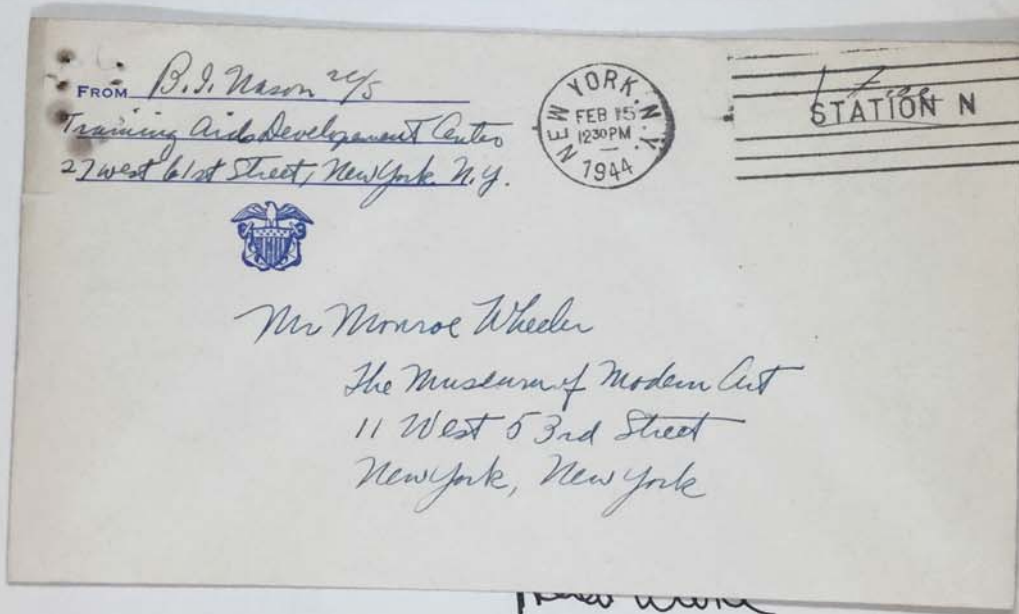 FROM B.I. Nason
Training Aids Development Center
27 west 61st Street, New York. N.Y.
NEW YORK, N.Y.
FEB 15
1230 PM
1944
STATION N
Mr Monroe Wheeler
The Museum of Modern Art
11 West 53rd Street
New York, New York